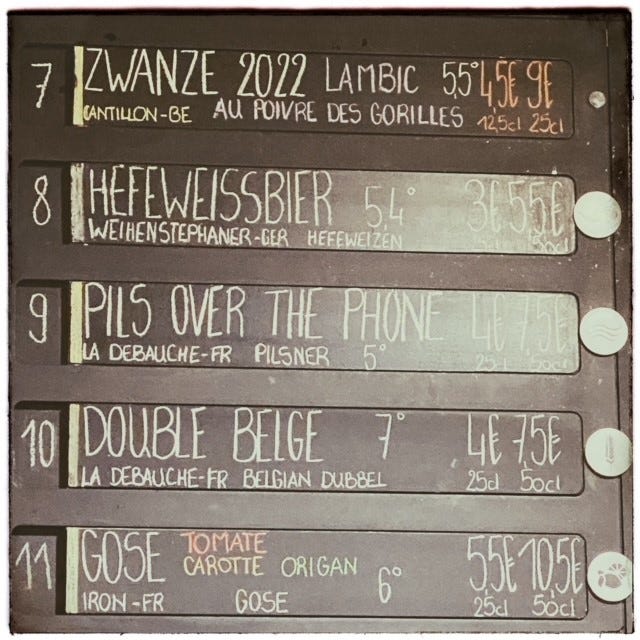 7 ZWANZE 2022 LAMBIC 5,5° 4,5€ 9€
CANTILLON-BE AU POIVRE DES GORILLES 12,5cl 25cl
8 HEFEWEISSBIER 5,4° 3€ 5,5€
WEIHENSTEPHANER-GER HEFEWEIZEN 50cl
9 PILS OVER THE PHONE 4€ 7,5€
LA DEBAUCHE-FR PILSNER 5° 25cl 50cl
10 DOUBLE BELGE 7° 4€ 7,5€
LA DEBAUCHE-FR BELGIAN DUBBEL 25cl 50cl
11 GOSE TOMATE
CAROTTE ORIGAN 6° 5,5€ 10,5€
IRON-FR GOSE 25cl 50cl